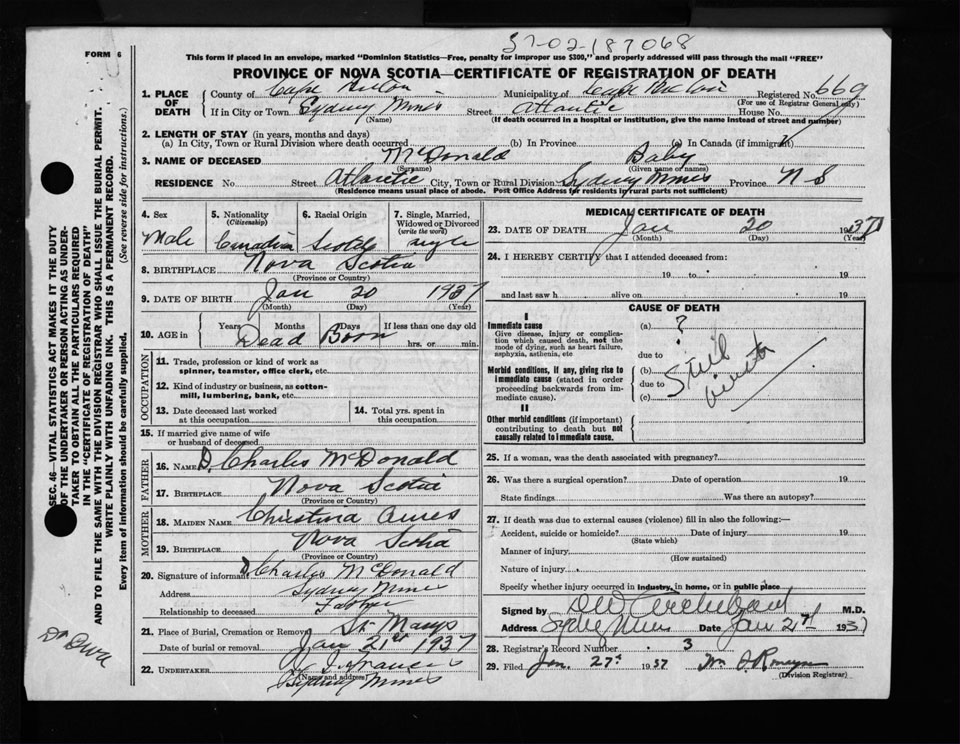 57-02-187068
FORM 6
This form if placed in an envelope, marked "Dominion Statistics—Free, penalty for improper use $300," and properly addressed will pass through the mail "FREE"
PROVINCE OF NOVA SCOTIA—CERTIFICATE OF REGISTRATION OF DEATH
1. PLACE OF DEATH County of Cape Breton Municipality of Cape Breton Registered No. 669
(For use of Registrar General only)
If in City or Town Sydney Mines Street Atlantic House No.
(Name) (If death occurred in a hospital or institution, give the name instead of street and number)
2. LENGTH OF STAY (in years, months and days)
(a) In City, Town or Rural Division where death occurred (b) In Province (c) In Canada (if immigrant)
3. NAME OF DECEASED McDonald Baby
(Surname) (Given name or names)
RESIDENCE No. Street Atlantic City, Town or Rural Division Sydney Mines Province N S
(Residence means usual place of abode. Post Office Address for residents in rural parts not sufficient)
4. Sex 5. Nationality (Citizenship) 6. Racial Origin 7. Single, Married, Widowed or Divorced (write the word)
Male Canadian Scotch single
8. BIRTHPLACE Nova Scotia
(Province or Country)
9. DATE OF BIRTH Jan 20 1937
(Month) (Day) (Year)
10. AGE in Years Months Days If less than one day old
Dead Born hrs. or min.
OCCUPATION
11. Trade, profession or kind of work as spinner, teamster, office clerk, etc.
12. Kind of industry or business, as cotton-mill, lumbering, bank, etc.
13. Date deceased last worked at this occupation 14. Total yrs. spent in this occupation
15. If married give name of wife or husband of deceased
FATHER
16. NAME D. Charles McDonald
17. BIRTHPLACE Nova Scotia
(Province or Country)
MOTHER
18. MAIDEN NAME Christina
19. BIRTHPLACE Nova Scotia
(Province or Country)
20. Signature of informant D Charles McDonald
Address Sydney Mines
Relationship to deceased Father
21. Place of Burial, Cremation or Removal St Marys
Date of burial or removal Jan 21st 1937
22. UNDERTAKER J. Francis
(Name and address)
Sydney Mines
MEDICAL CERTIFICATE OF DEATH
23. DATE OF DEATH Jan 20 1937
(Month) (Day) (Year)
24. I HEREBY CERTIFY that I attended deceased from:
19 to 19
and last saw h alive on 19
CAUSE OF DEATH
I
Immediate cause
Give disease, injury or complication which caused death, not the mode of dying, such as heart failure, asphyxia, asthenia, etc
(a) ?
due to
Morbid conditions, if any, giving rise to immediate cause (stated in order proceeding backwards from immediate cause).
(b)
due to
(c)
Still birth
II
Other morbid conditions (if important) contributing to death but not causally related to immediate cause.
25. If a woman, was the death associated with pregnancy?
26. Was there a surgical operation? Date of operation 19
State findings Was there an autopsy?
27. If death was due to external causes (violence) fill in also the following:—
Accident, suicide or homicide? Date of injury 19
(State which)
Manner of injury
(How sustained)
Nature of injury
Specify whether injury occurred in industry, in home, or in public place
Signed by D W Archibald M.D.
Address Sydney Mines Date Jan 21st 1937
28. Registrar's Record Number 3
29. Filed Jan. 27th 1937
(Division Registrar)
SEC. 46—VITAL STATISTICS ACT MAKES IT THE DUTY OF THE UNDERTAKER OR PERSON ACTING AS UNDERTAKER TO OBTAIN ALL THE PARTICULARS REQUIRED IN THE "CERTIFICATE OF REGISTRATION OF DEATH" AND TO FILE THE SAME WITH THE DIVISION REGISTRAR WHO SHALL ISSUE THE BURIAL PERMIT.
WRITE PLAINLY WITH UNFADING INK. THIS IS A PERMANENT RECORD.
Every item of information should be carefully supplied. (See reverse side for instructions.)